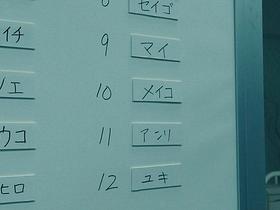 セイゴ
イチ 9 マイ
ノエ 10 メイコ
ウコ 11 アンリ
ヒロ 12 ユキ